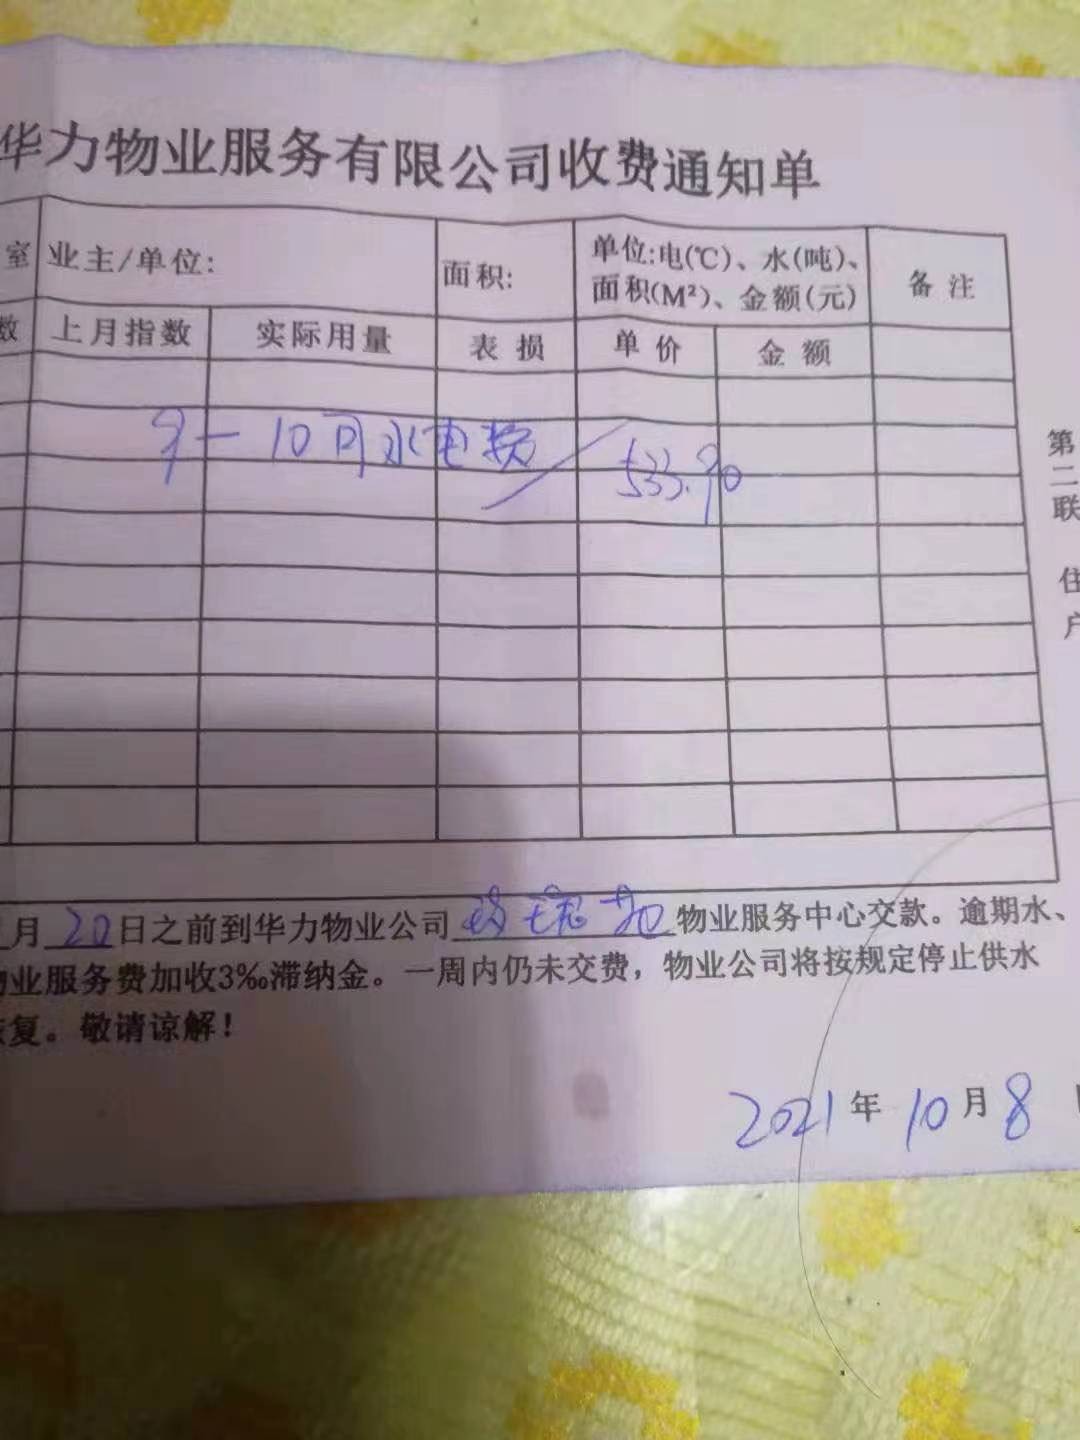 华力物业服务有限公司收费通知单
室 业主/单位: 面积: 单位:电(℃)、水(吨)、面积(M²)、金额(元) 备注
数 上月指数 实际用量 表损 单价 金额
9-10月水电费 / 533.90
第二联 住户
月20日之前到华力物业公司 物业服务中心交款。逾期水、
业服务费加收3‰滞纳金。一周内仍未交费，物业公司将按规定停止供水
复。敬请谅解！
2021年10月8